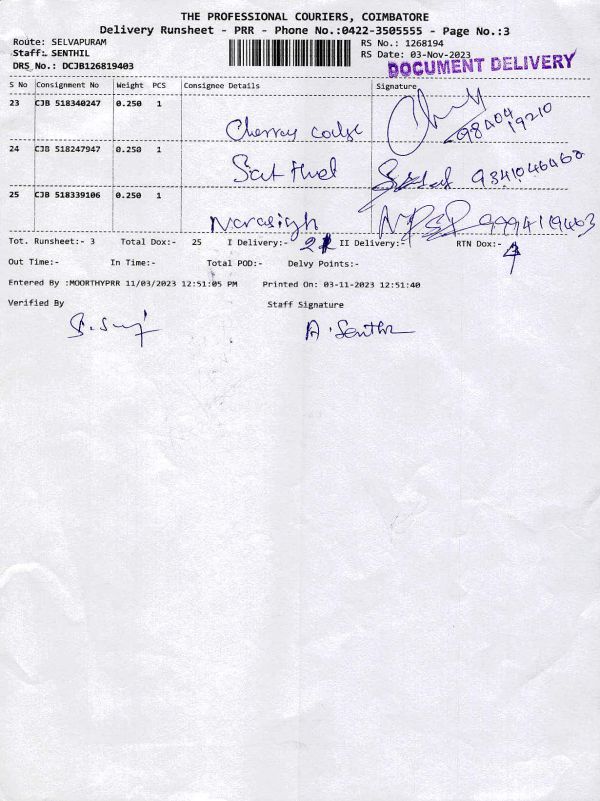 THE PROFESSIONAL COURIERS, COIMBATORE
Delivery Runsheet - PRR - Phone No.:0422-3505555 - Page No.:3
Route: SELVAPURAM RS No.: 1268194
Staff: SENTHIL RS Date: 03-Nov-2023
DRS No.: DCJB126819403 DOCUMENT DELIVERY
S No Consignment No Weight PCS Consignee Details Signature
23 CJB 518340247 0.250 1
98404
19210
24 CJB 518247947 0.250 1
9341046460
25 CJB 518339106 0.250 1
Narasigh 9994119463
Tot. Runsheet:- 3 Total Dox:- 25 I Delivery:- II Delivery:- RTN Dox:- 4
Out Time:- In Time:- Total POD:- Delvy Points:-
Entered By :MOORTHYPRR 11/03/2023 12:51:05 PM Printed On: 03-11-2023 12:51:40
Verified By Staff Signature
A. Senthil